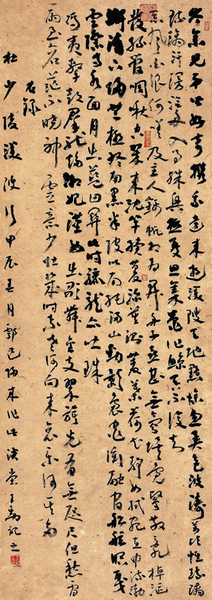 岑參兄弟皆好奇攜我遠來遊渼陂天地黯慘忽異色波濤萬頃堆琉璃
琉璃漫汗泛舟入事殊興極憂思集鼉作鯨吞不復知
惡風白浪何嗟及主人錦帆相為開舟子喜甚無氛埃鳧鷖散亂棹謳
發絲管啁啾空翠來沈竿續縵深莫測菱葉荷花淨如拭宛在中流渤
澥清下歸無極終南黑半陂以南純浸山動影裊窕沖融間船舷暝戛
雲際寺水面月出藍田關此時驪龍亦吐珠
馮夷擊鼓群龍趨湘妃漢女出歌舞金支翠旗光有無咫尺但愁雷
雨至蒼茫不曉神靈意少壯幾時奈老何向來哀樂何其多
右錄
杜少陵渼陂行甲辰